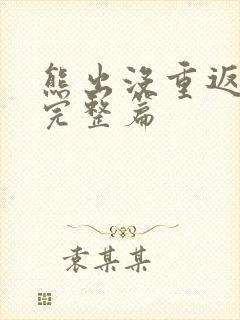 熊出没重返
完整篇
袁某某